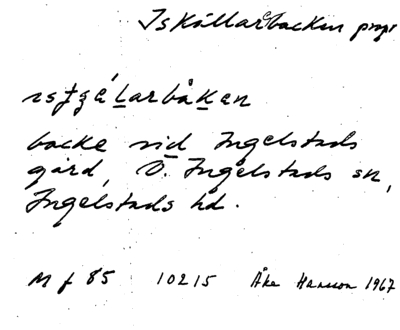 Iskällarbacken propr
backe vid Ingelstads
gård, Ö. Ingelstads sn,
Ingelstads hd.
M f 85 10215 Åke Hansson 1967